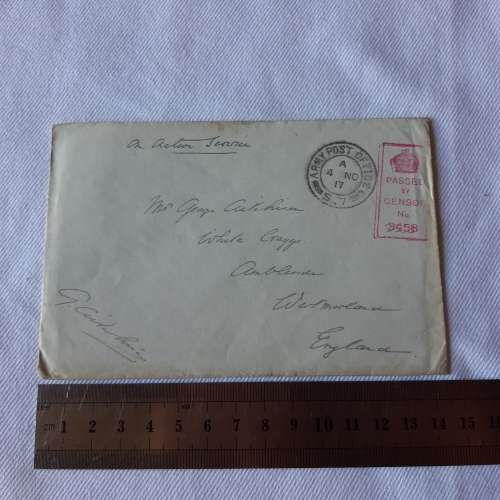 On Active Service
ARMY POST OFFICE
A
4 NO
17
S.
PASSED
BY
CENSOR
No.
3458
Mr Geo Aitchison
White Craggs
Ambleside
Westmorland
England
cm 1 2 3 4 5 6 7 8 9 10 11 12 13 14 15 16